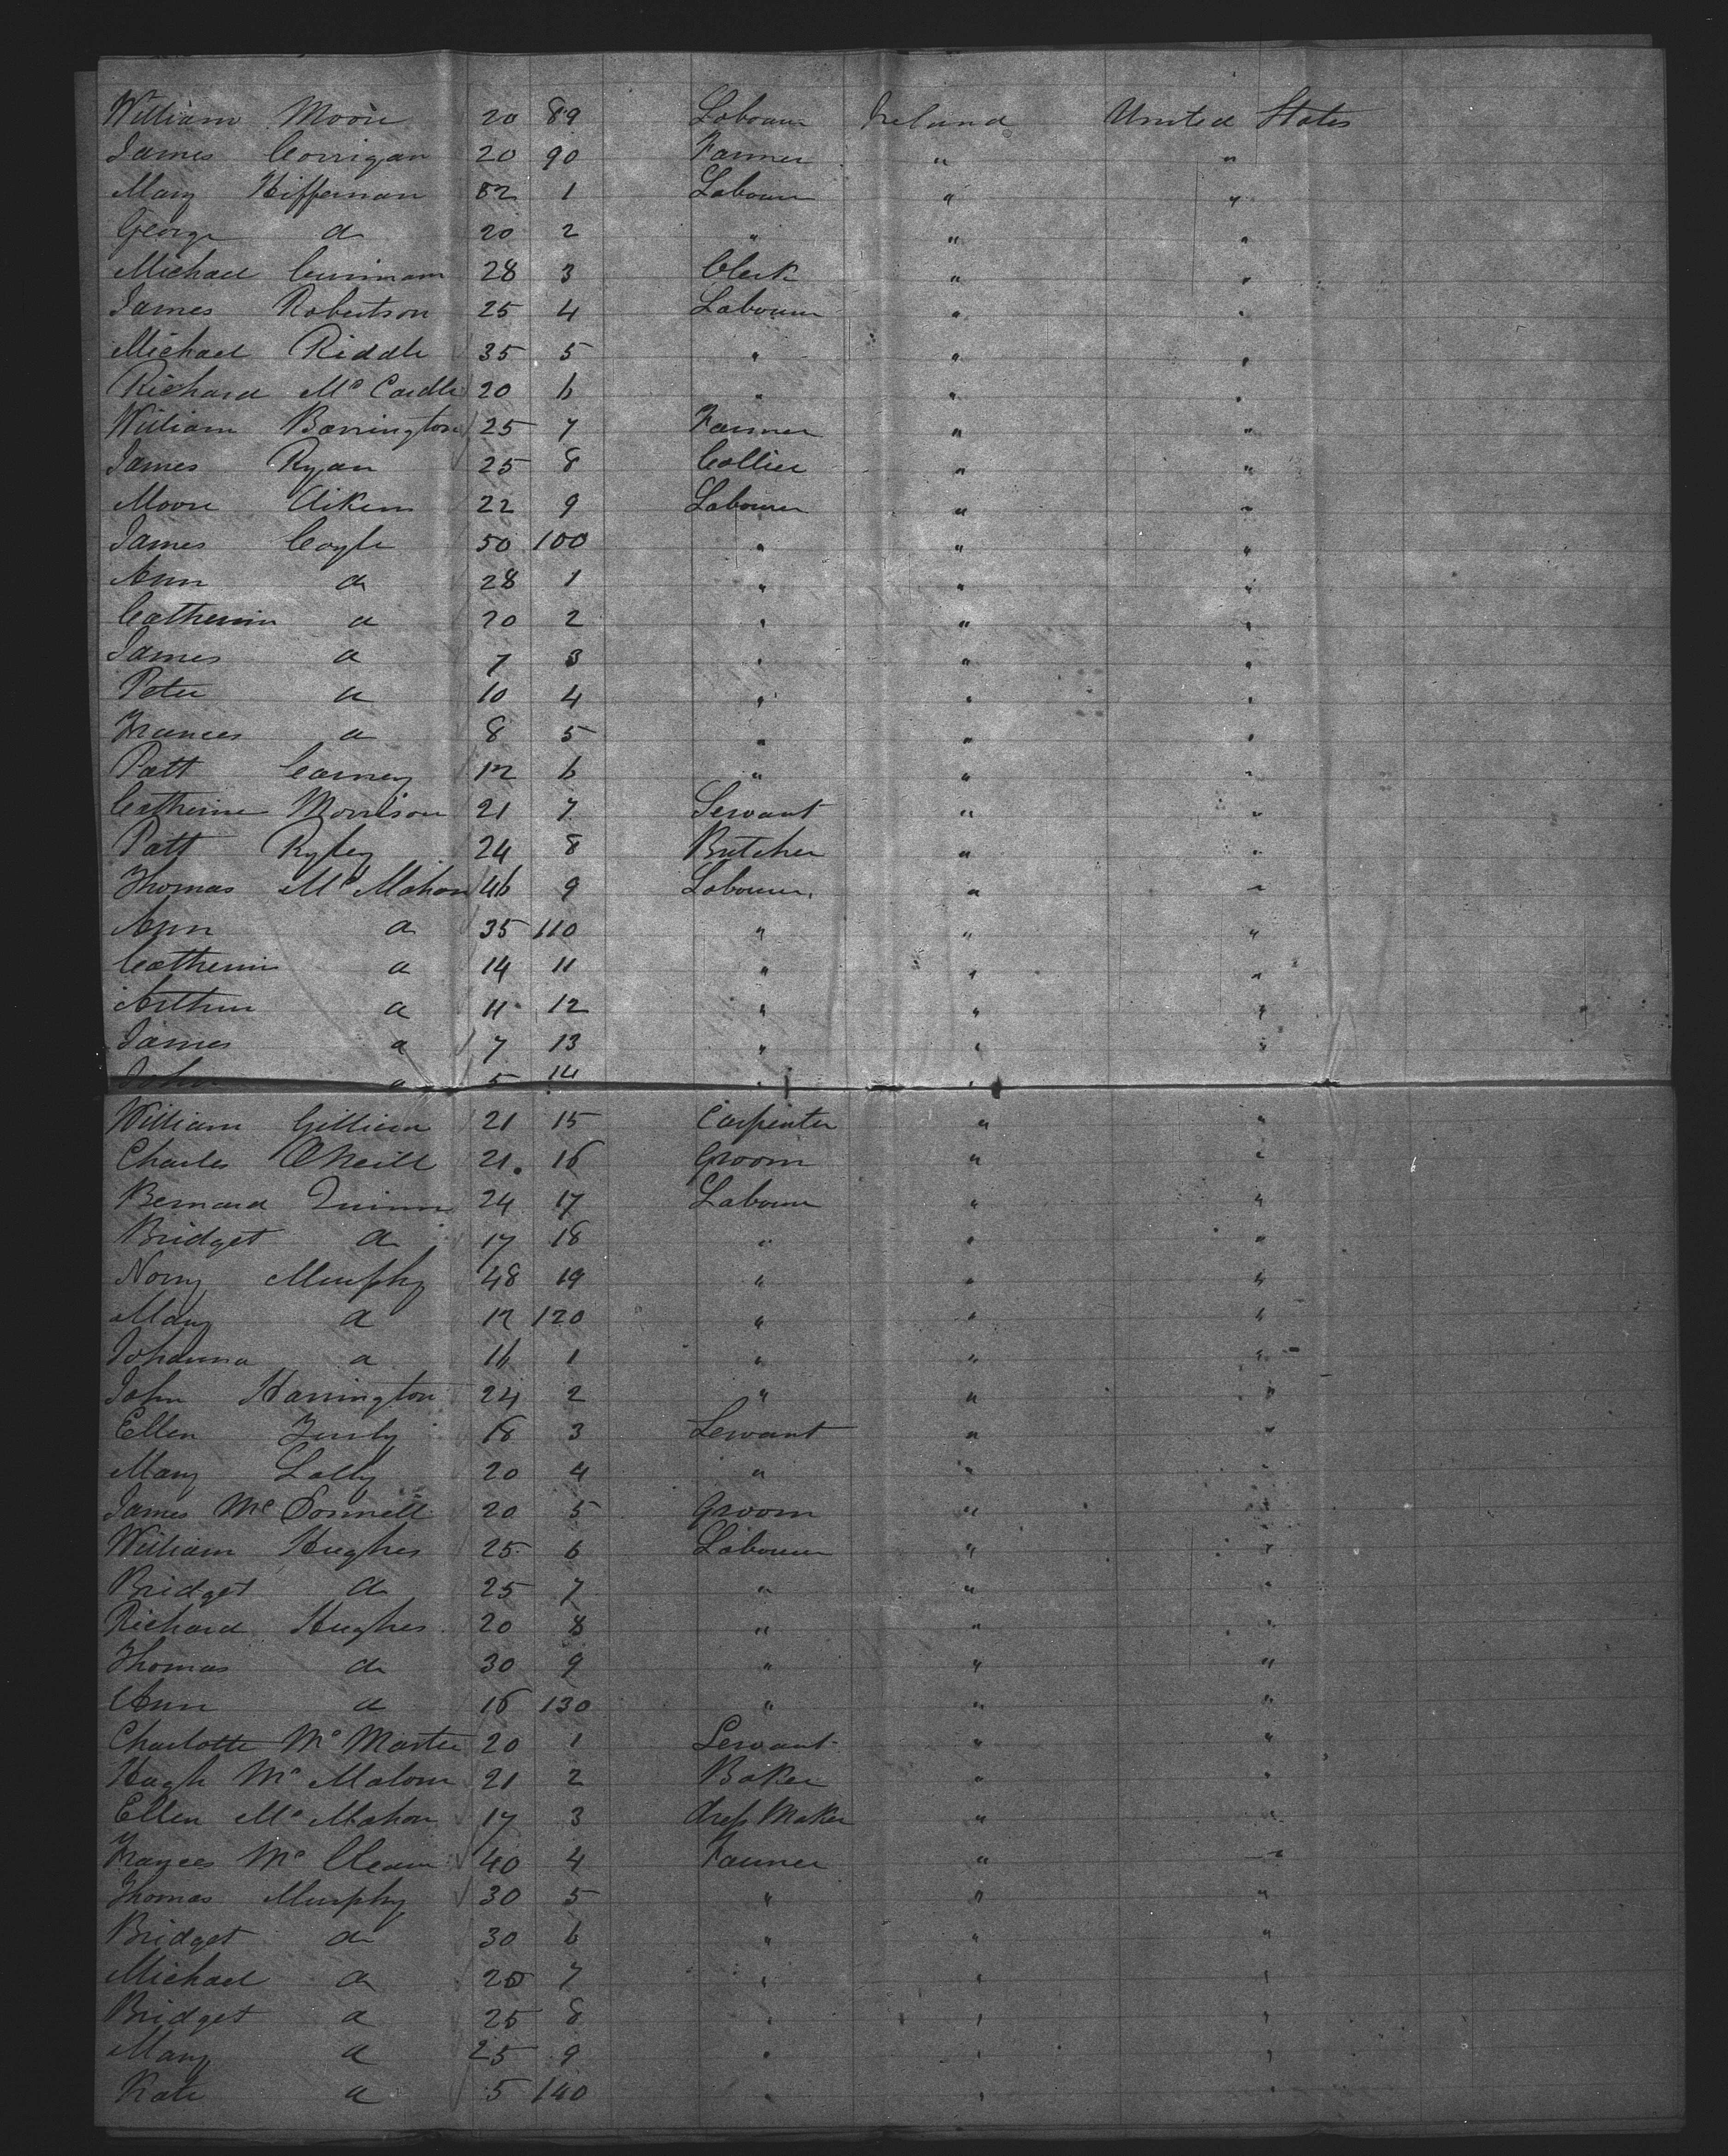 William Moore 20 89 Labourer Ireland United States
James Corrigan 20 90 Farmer " "
Mary Hiffernan 52 1 Labourer " "
George d 20 2 " " "
Michael 28 3 Clerk " "
James Robertson 25 4 Labourer " "
Michael Riddle 35 5 " " "
Richard Mc Cardle 20 6 " " "
William Barrington 25 7 Farmer " "
James Ryan 25 8 Collier " "
Moore Aiken 22 9 Labourer " "
James Coyle 50 100 " " "
Ann d 28 1 " " "
Catherine d 20 2 " " "
James d 7 3 " " "
Peter d 10 4 " " "
Frances d 8 5 " " "
Patt Carney 12 6 " " "
Catherine Morrison 21 7 Servant " "
Patt Ryley 24 8 Butcher " "
Thomas Mc Mahon 46 9 Labourer " "
Ann d 35 110 " " "
Catherine d 14 11 " " "
Arthur d 11 12 " " "
James d 7 13 " " "
John d 5 14 " "
William Gillien 21 15 Carpenter " "
Charles O'Neill 21 16 Groom " "
Bernard Quinn 24 17 Labourer " "
Bridget d 17 18 " " "
Nory Murphy 48 19 " " "
Mary d 12 120 " " "
Johanna d 16 1 " " "
John Harrington 24 2 " " "
Ellen 18 3 Servant " "
Mary Lally 20 4 " " "
James Mc Donnell 20 5 Groom " "
William Hughes 25 6 Labourer " "
Bridget d 25 7 " " "
Richard Hughes 20 8 " " "
Thomas d 30 9 " " "
Ann d 16 130 " " "
Charlotte Mc Master 20 1 Servant " "
Hugh Mc Malone 21 2 Baker " "
Ellen Mc Mahon 17 3 dress Maker " "
Frances Mc Clean 40 4 Farmer " "
Thomas Murphy 30 5 " " "
Bridget d 30 6 " " "
Michael d 25 7 " " "
Bridget d 25 8 " " "
Mary d 25 9 " " "
Kate d 5 140 " " "